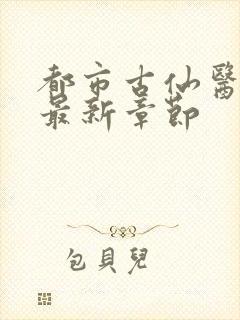 都市古仙醫
最新章節
包貝兒